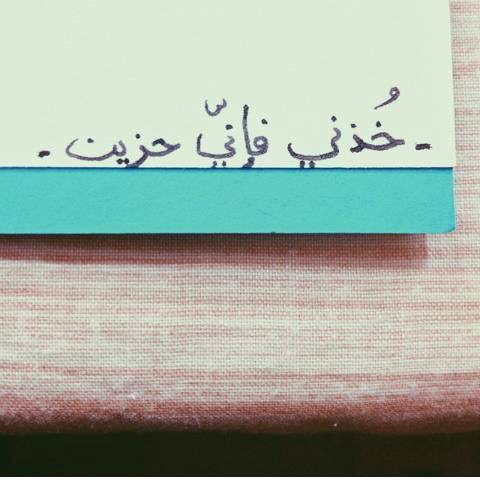 - خُذني فإنيّ حزين -